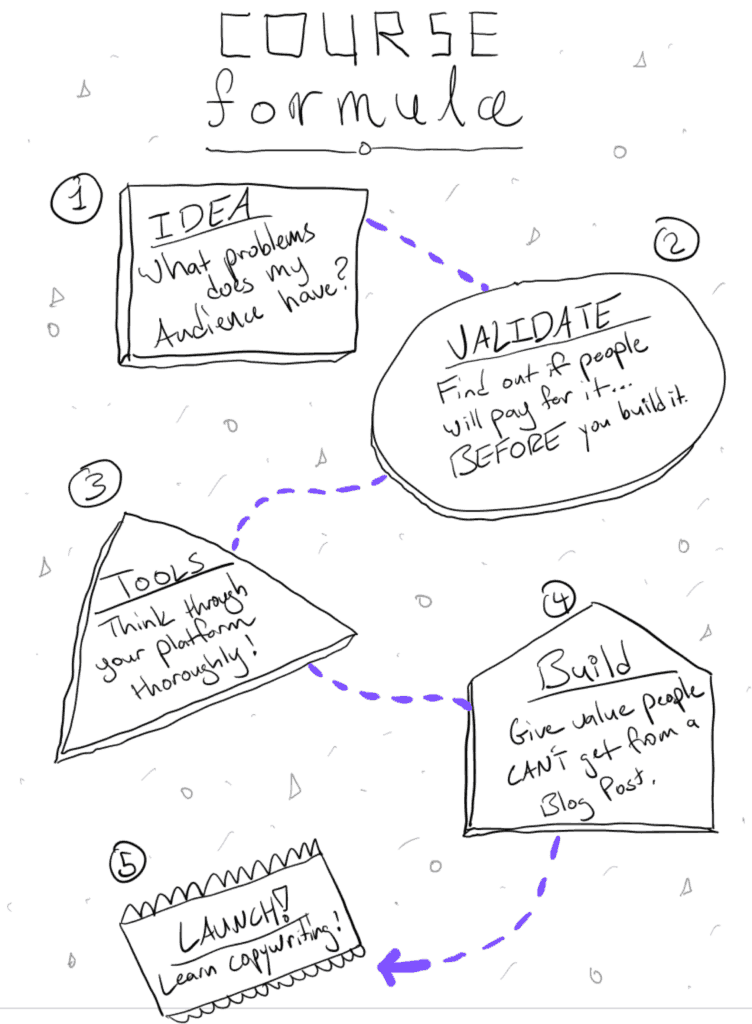 COURSE
formula
1
IDEA
What problems
does my
Audience have?
2
VALIDATE
Find out if people
will pay for it...
BEFORE you build it.
3
TOOLS
Think through
your platform
thoroughly!
4
Build
Give value people
CAN'T get from a
Blog Post.
5
LAUNCH!
Learn copywriting!